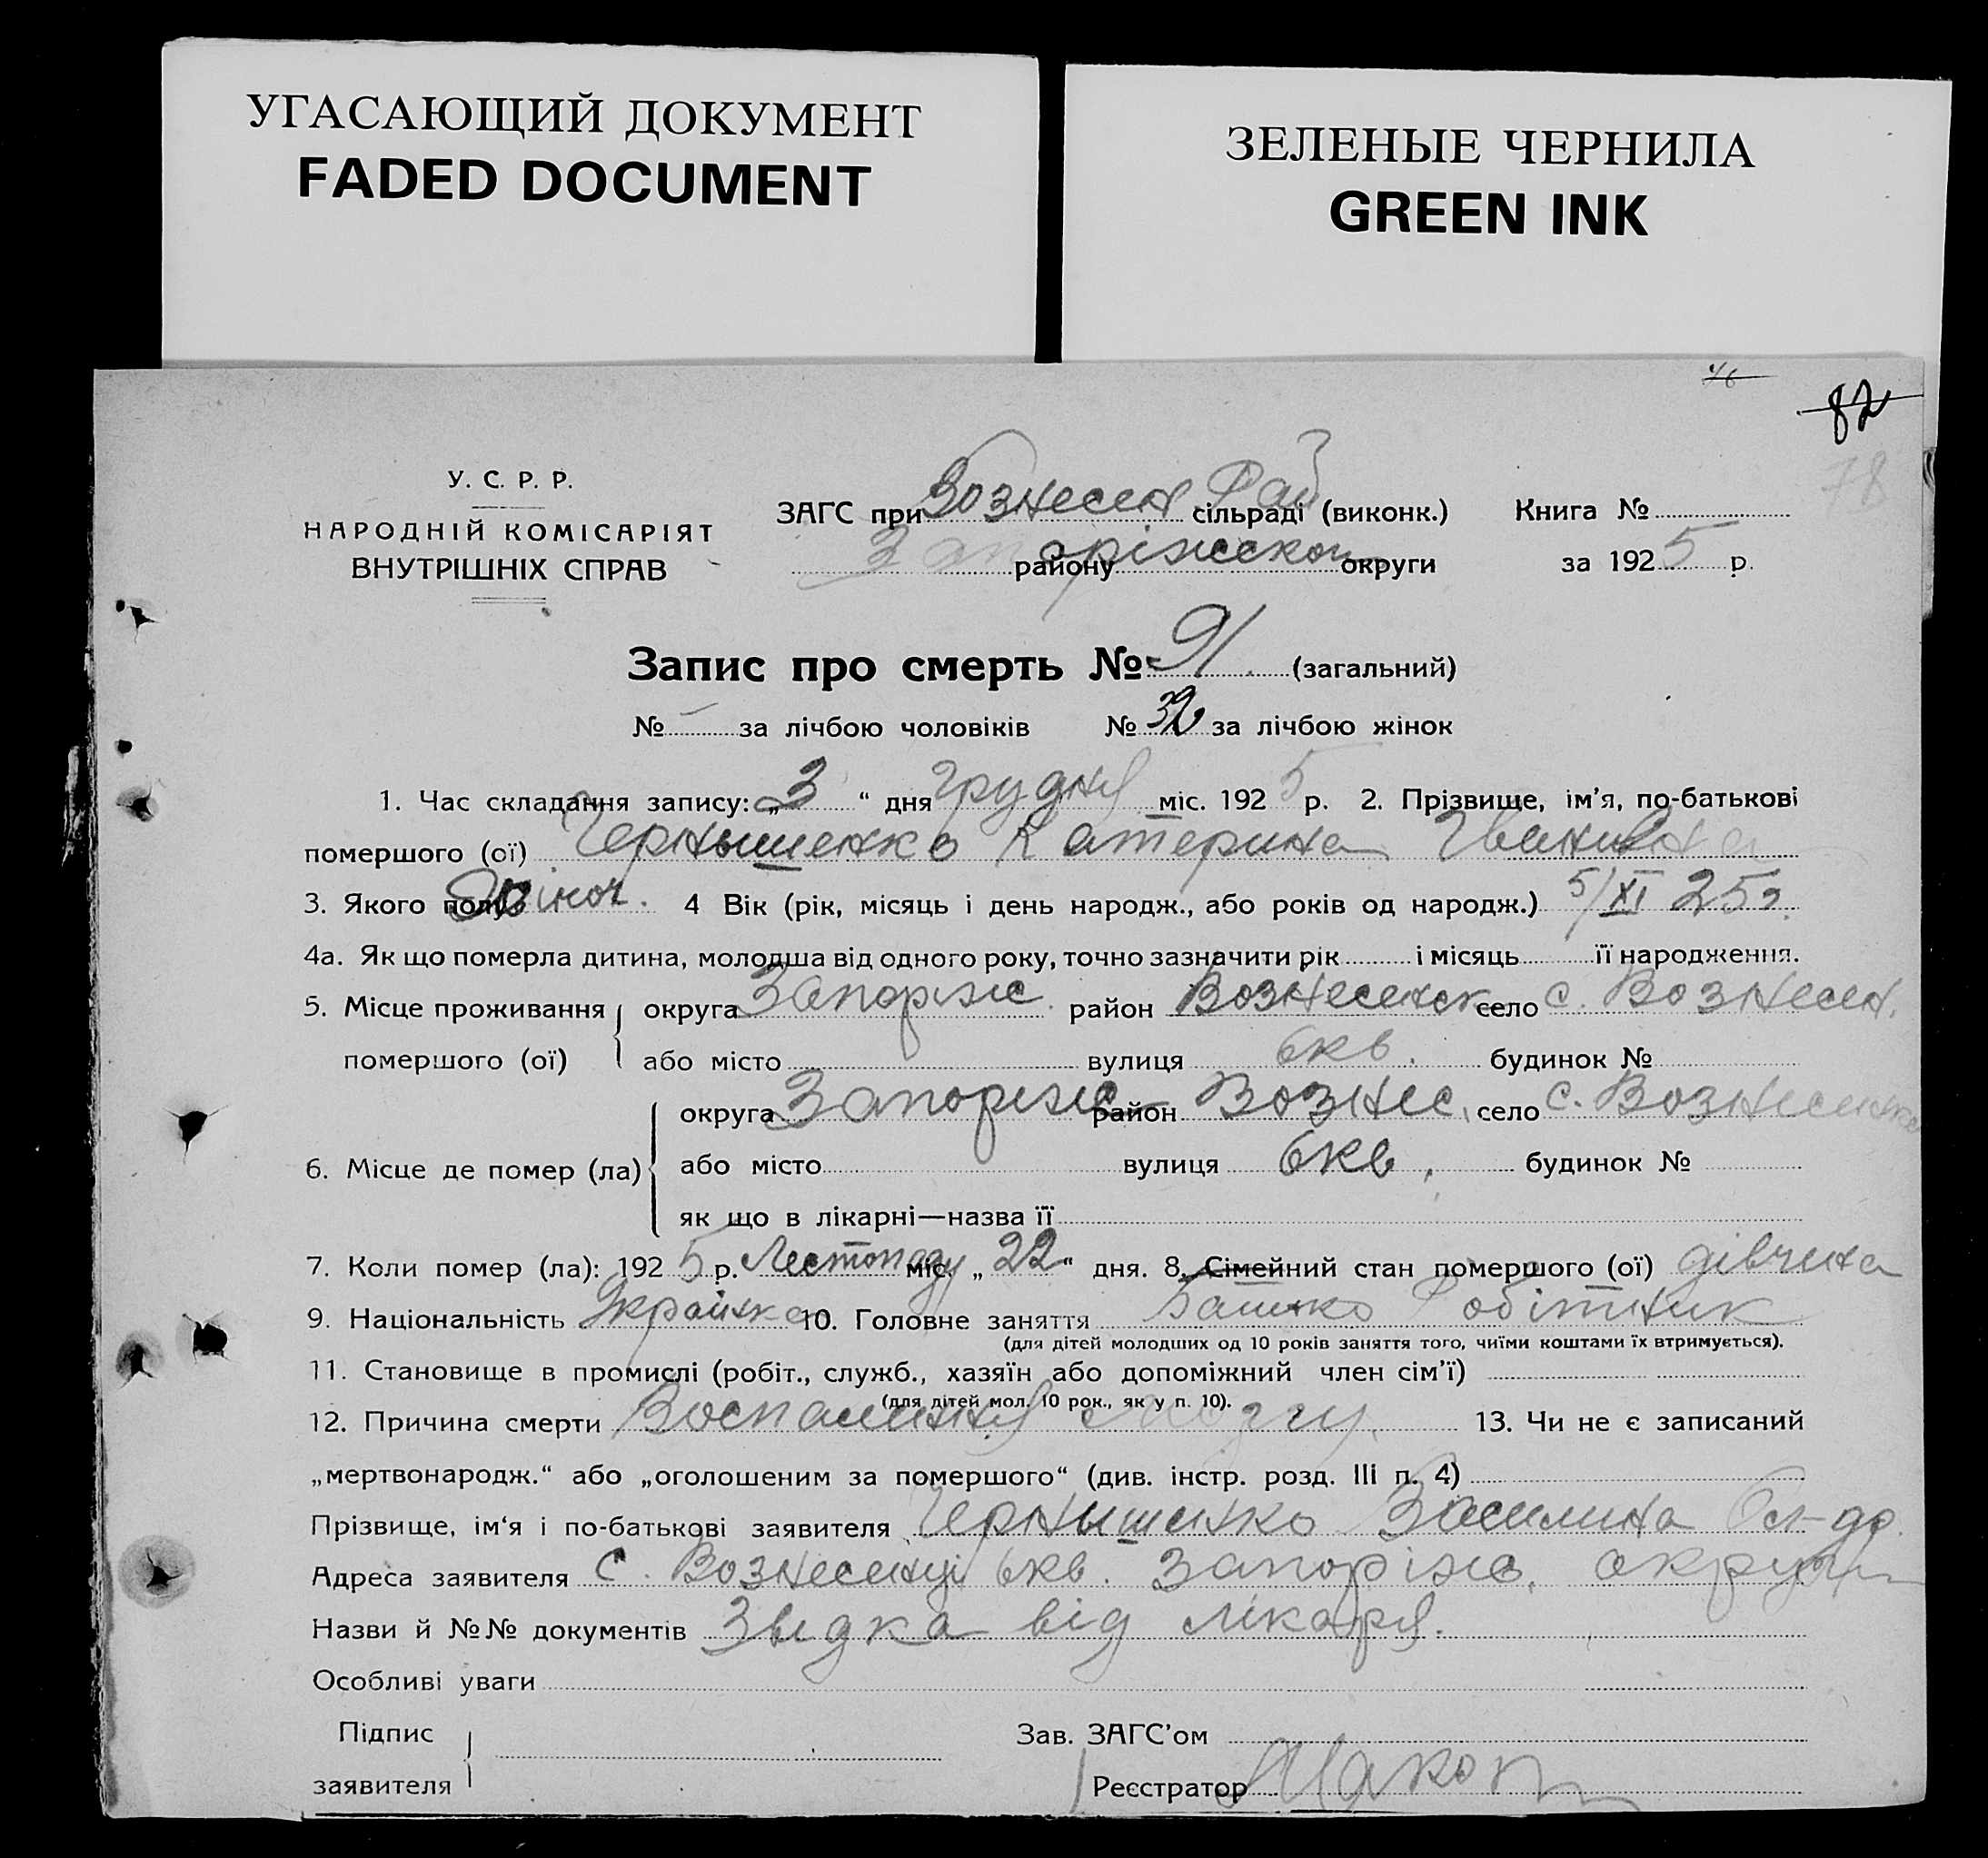 УГАСАЮЩИЙ ДОКУМЕНТ
FADED DOCUMENT
ЗЕЛЕНЫЕ ЧЕРНИЛА
GREEN INK
82
78
У. С. Р. Р.
НАРОДНІЙ КОМІСАРІЯТ
ВНУТРІШНІХ СПРАВ
ЗАГС при Вознесен Рай сільраді (виконк.)
Запоріжскои району округи
Книга №
за 1925 р.
Запис про смерть № 91 (загальний)
№ – за лічбою чоловіків № 32 за лічбою жінок
1. Час складання запису: „3“ дня Грудня міс. 1925 р. 2. Прізвище, ім'я, по-батькові
помершого (ої) Чернышенко Катерина
3. Якого полу Жіноч. 4 Вік (рік, місяць і день народж., або років од народж.) 5/XI 25 р.
4а. Як що померла дитина, молодша від одного року, точно зазначити рік і місяць її народження.
5. Місце проживання помершого (ої) округа Запоріж. район Вознесенск село с. Вознесен.
або місто вулиця 6кв. будинок №
6. Місце де помер (ла) округа Запоріж район Вознес. село с. Вознесенка
або місто вулиця 6кв. будинок №
як що в лікарні—назва її
7. Коли помер (ла): 1925 р. Листопаду міс. „22“ дня. 8. Сімейний стан помершого (ої) дівчина
9. Національність Украінка 10. Головне заняття Батько Робітник
(для дітей молодших од 10 років заняття того, чиїми коштами їх втримується).
11. Становище в промислі (робіт., служб., хазяїн або допоміжний член сім'ї)
(для дітей мол. 10 рок., як у п. 10).
12. Причина смерти Воспаления мозгу. 13. Чи не є записаний
„мертвонародж.“ або „оголошеним за помершого“ (див. інстр. розд. III п. 4)
Прізвище, ім'я і по-батькові заявителя Чернышенко Василина
Адреса заявителя с. Вознесенці 6кв. Запоріж. округи
Назви й №№ документів Звідка від лікаря.
Особливі уваги
Підпис заявителя
Зав. ЗАГС'ом
Реєстратор